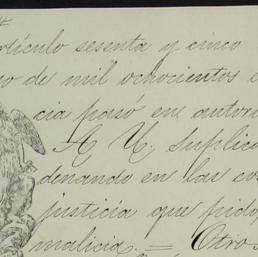 artículo sesenta y cinco
de mil ochocientos
cia pasó en autori
A U. Suplico
denando en las cos
justicia que pido
malicia. = Otro